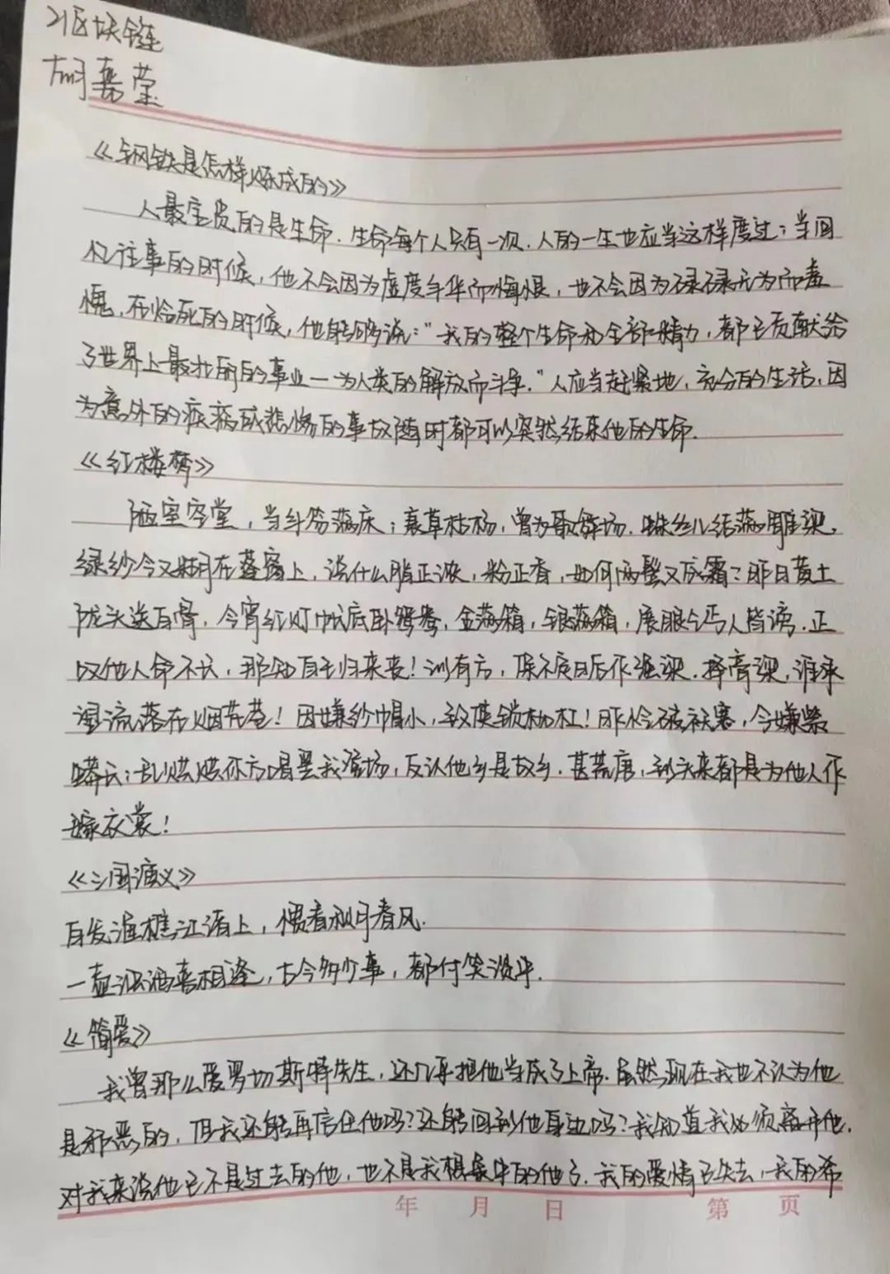 21区块链
胡嘉莹
《钢铁是怎样炼成的》
人最宝贵的是生命.生命每个人只有一次.人的一生也应当这样度过:当回
忆往事的时候,他不会因为虚度年华而悔恨,也不会因为碌碌无为而羞
愧,在临死的时候,他能够说:"我的整个生命和全部精力,都已贡献给
了世界上最壮丽的事业—为人类的解放而斗争."人应当赶紧地,充分的生活,因
为意外的疾病或悲惨的事故随时都可以突然结束他的生命.
《红楼梦》
陋室空堂,当年笏满床;衰草枯杨,曾为歌舞场.蛛丝儿结满雕梁,
绿纱今又糊在蓬窗上,说什么脂正浓,粉正香,如何两鬓又成霜?昨日黄土
陇头送白骨,今宵红灯帐底卧鸳鸯,金满箱,银满箱,展眼乞丐人皆谤.正
叹他人命不长,那知自己归来丧!训有方,保不定日后作强梁.择膏粱,谁承
望流落在烟花巷!因嫌纱帽小,致使锁枷杠!昨怜破袄寒,今嫌紫
蟒长:乱烘烘你方唱罢我登场,反认他乡是故乡.甚荒唐,到头来都是为他人作
嫁衣裳!
《三国演义》
白发渔樵江渚上,惯看秋月春风.
一壶浊酒喜相逢,古今多少事,都付笑谈中.
《简爱》
我曾那么爱罗切斯特先生,还几乎把他当成了上帝.虽然现在我也不认为他
是邪恶的,但我还能再信任他吗?还能回到他身边吗?我知道我必须离开他.
对我来说他已不是过去的他,也不是我想象中的他了.我的爱情已失去,我的希
年 月 日 第 页